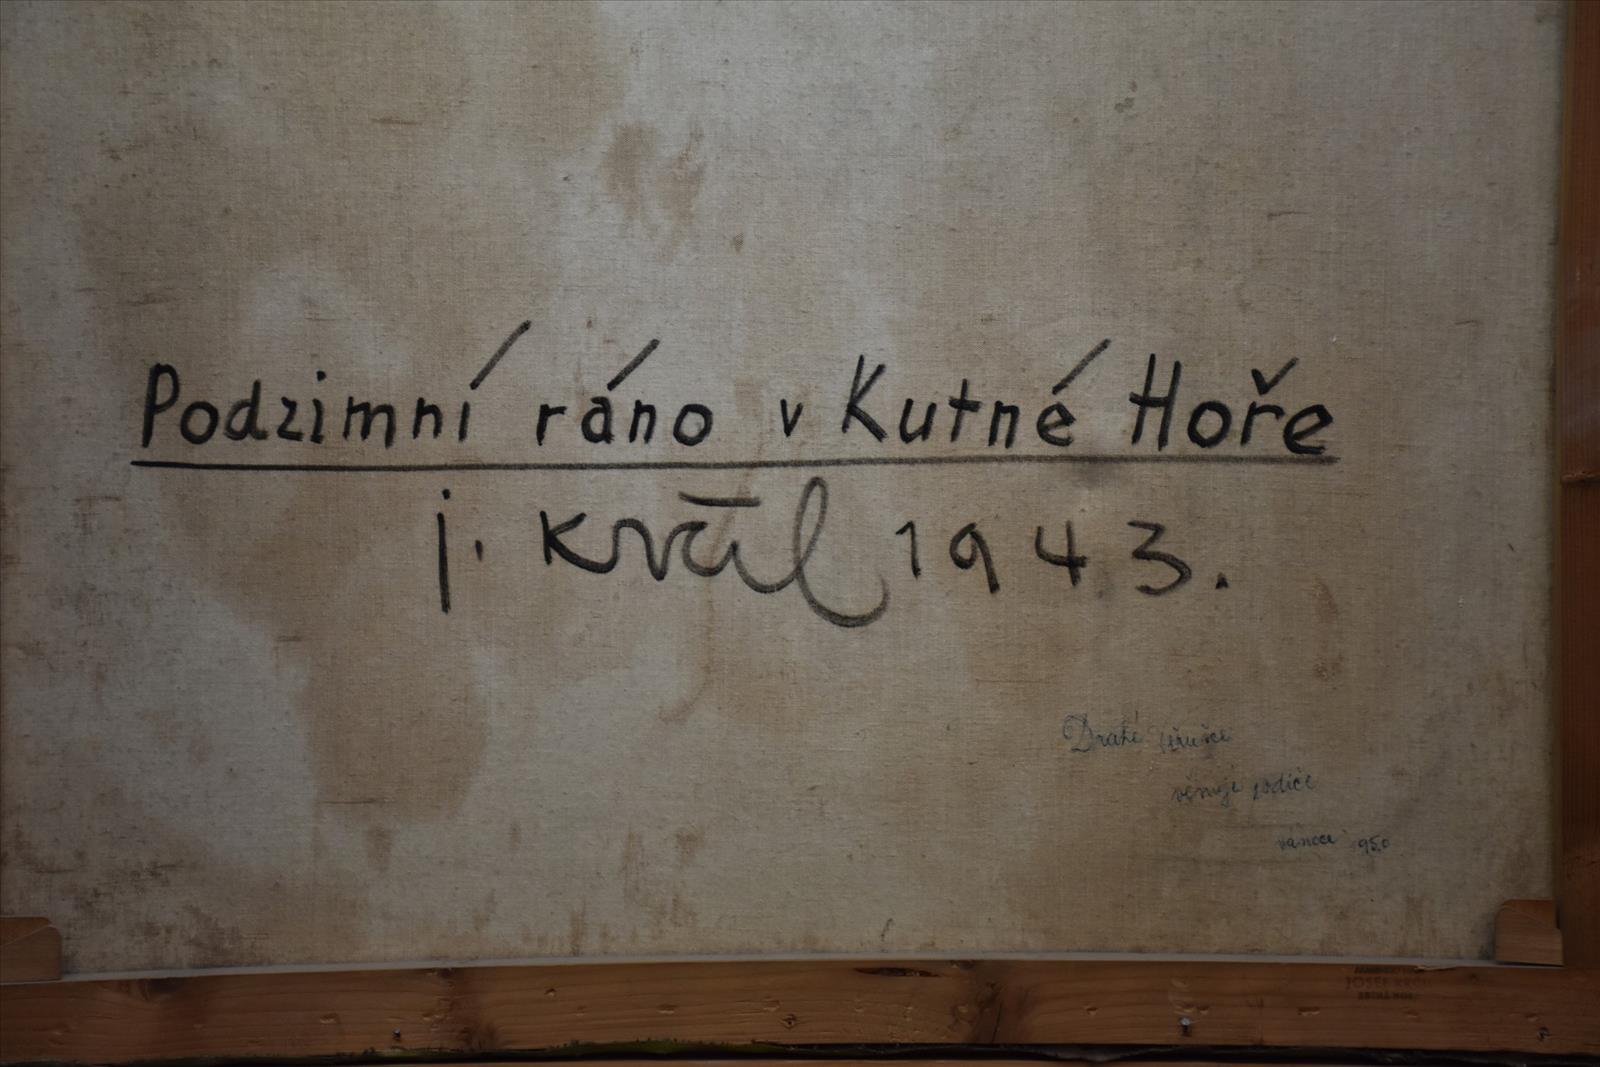 Podzimní ráno v Kutné Hoře
j. Král 1943.
Drahé
věnují rodiče
vánoce 1950
JOSEF